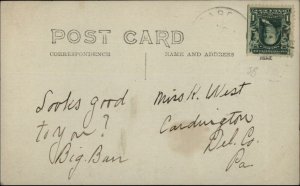 POST CARD
CORRESPONDENCE
NAME AND ADDRESS
Looks good
to You?
Big.Barr
Miss R. West
Cardington
Del. Co.
Pa